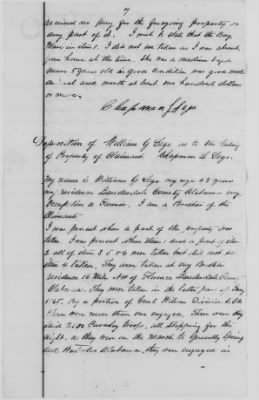 7
received no pay for the foregoing property or
any part of it. I wish to state that the Bay
Mare in item 1. I did not see taken as I was absent
from home at the time. She was a medium size
mare 5 years old in good condition was good work
animal and worth at least one hundred dollars
or more.
Chapman L Sego
Deposition of William G Sego as to the taking
of Property of Claimant Chapman L. Sego.
My name is William G Sego my age 43 years
my residence Lauderdale County Alabama my
occupation a Farmer. I am a Brother of the
Claimant.
I was present when a part of the property was
taken. I was present when item 1 and a part of item
2 all of item 3. 5. were taken but did not see
item 4 taken. They were taken at my Brothers
residence 16 miles of Florence Lauderdale
Alabama. They were taken in the latter part of
1865. By a portion of Genl Wilsons Division U.S.A.
there were more than one engaged. There were
about 2500 Cavalry Troops, all stopping for the
night, as they were on the march to Gravelly Spring
and Waterloo Alabama, they were engaged in